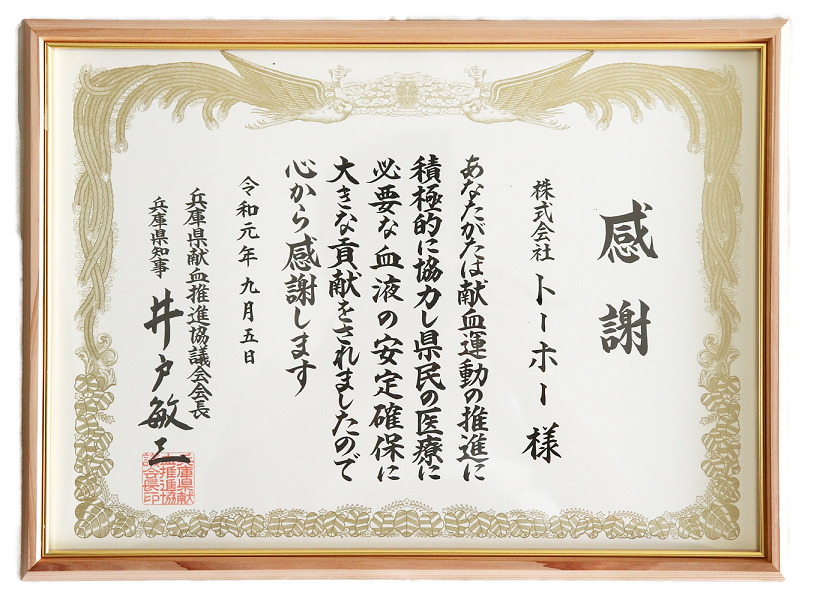 感謝
株式会社 トーホー 様
あなたがたは献血運動の推進に
積極的に協力し県民の医療に
必要な血液の安定確保に
大きな貢献をされましたので
心から感謝します
令和元年九月五日
兵庫県献血推進協議会会長
兵庫県知事 井戸敏三
兵庫県献
血推進協
議会長印